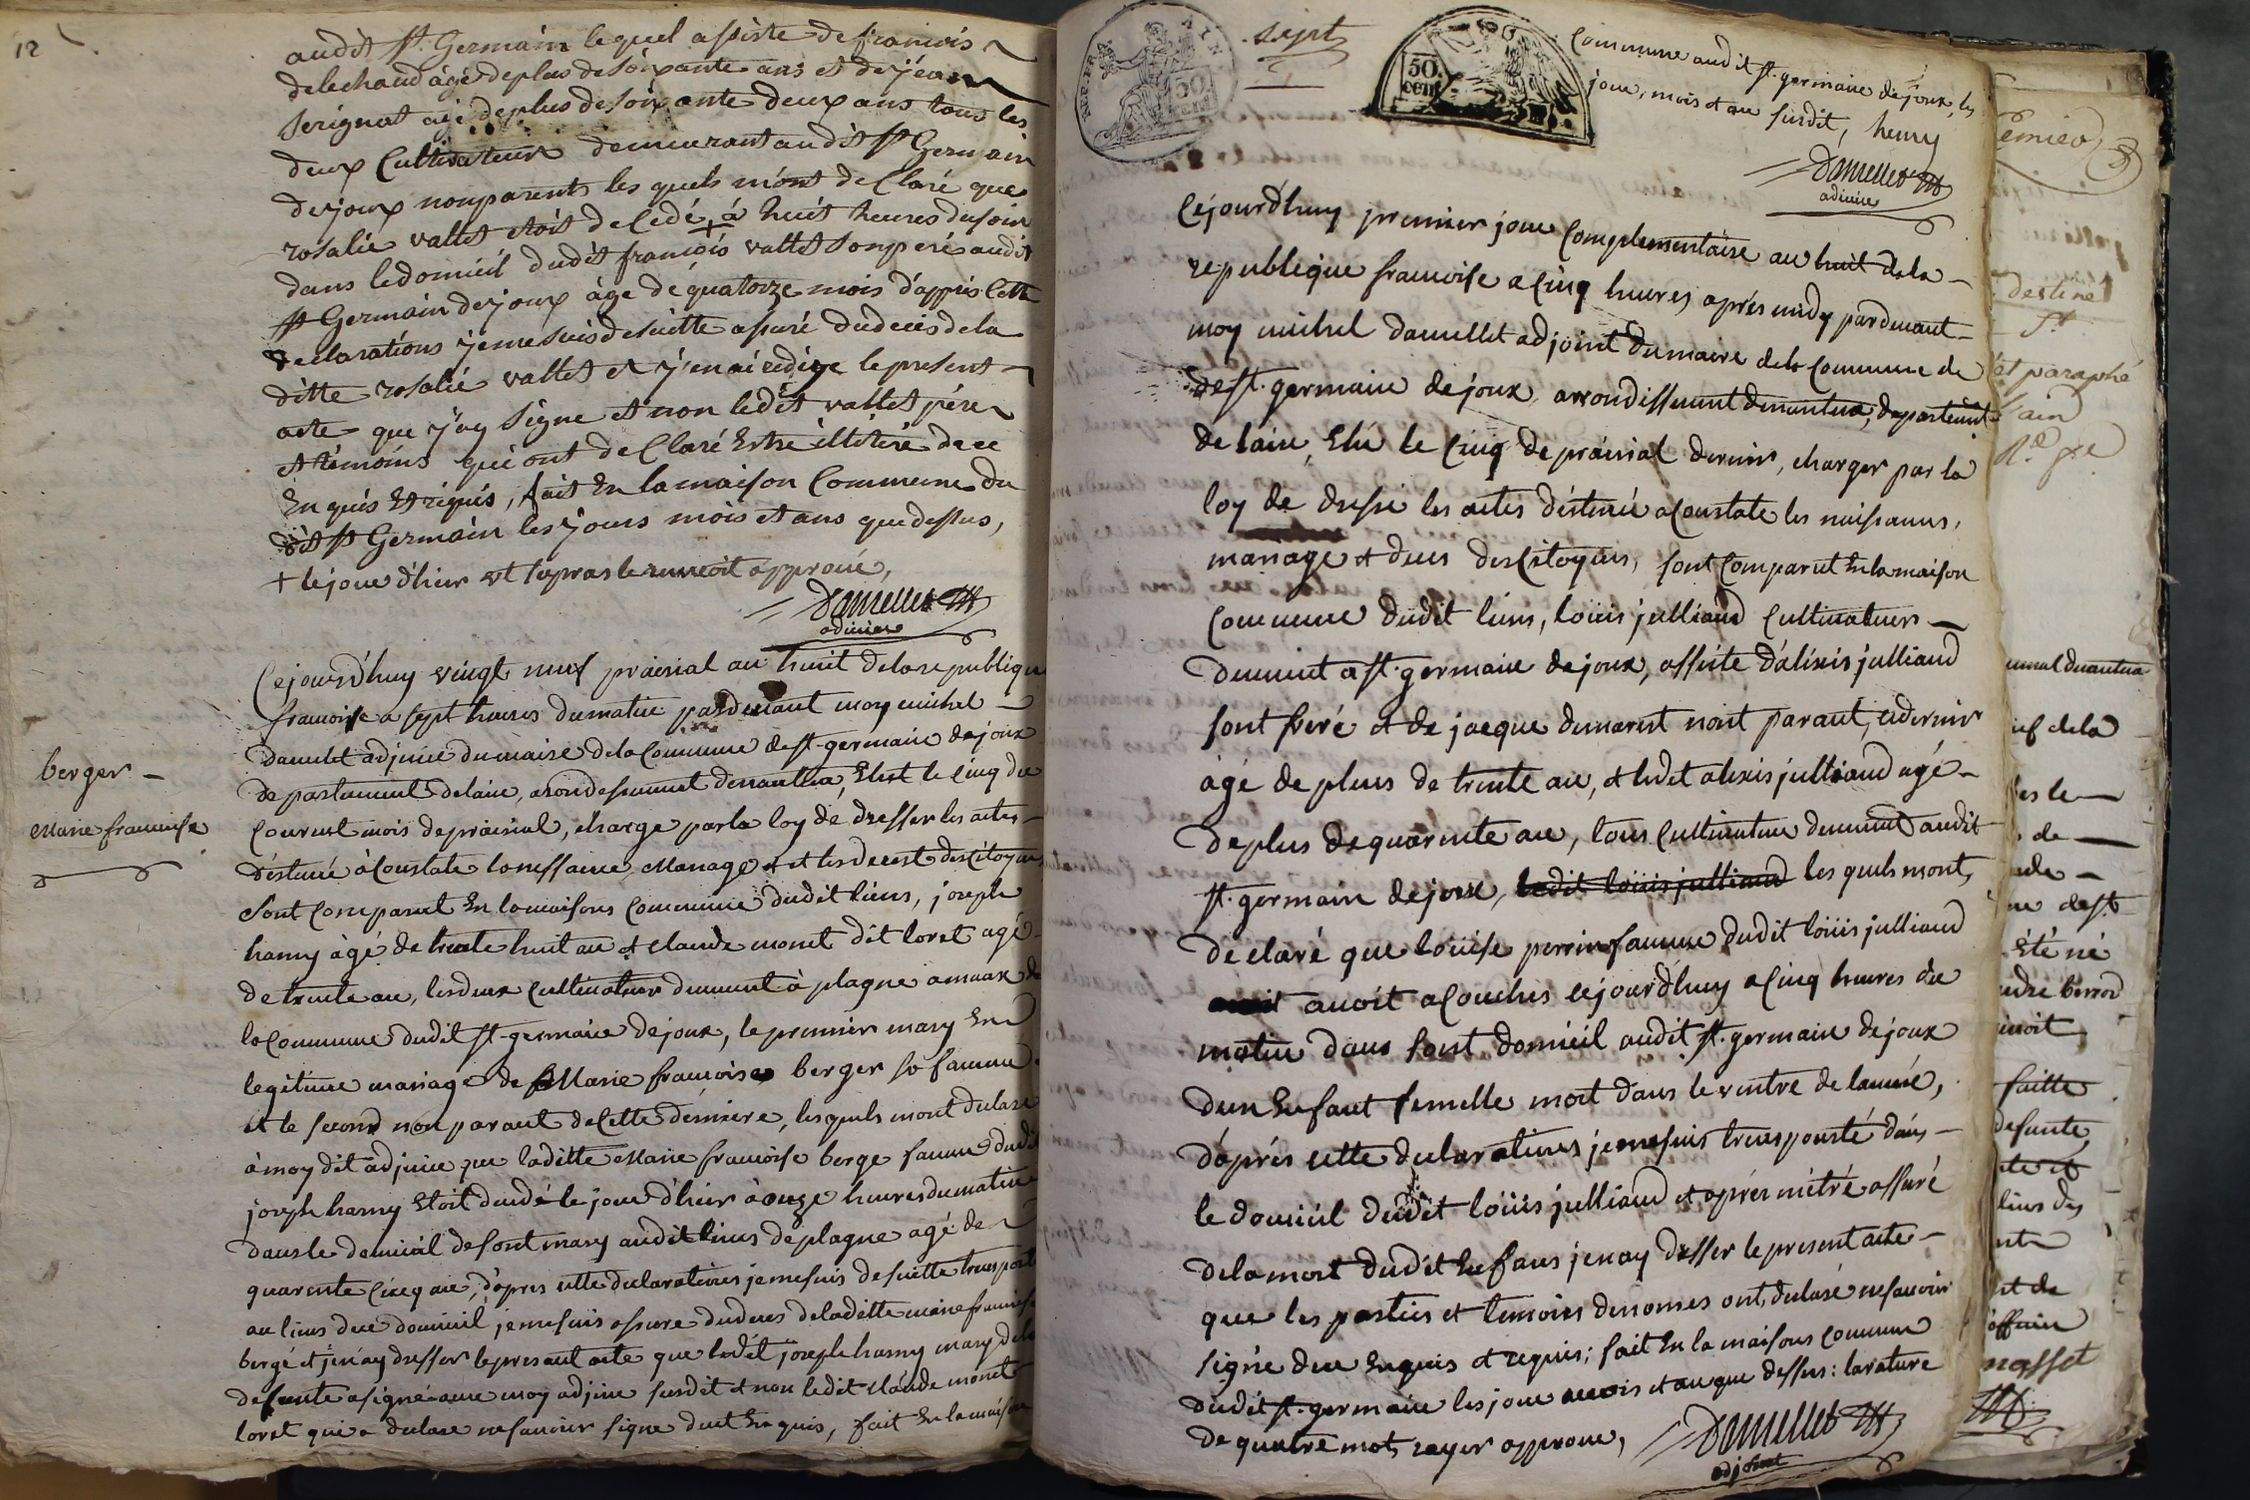 12
audit st. Germain lequel assiste de francois
delechaud âgé de plus de soixante ans et de jean
serignat agé de plus de soixante deux ans tous les
deux Cultivateur demeurant audit st Germain
dejoux nonparents les quels m'ont declaré que
rosalie vallet etoit decedé + á huit heures dusoir
dans ledomicil dudit françois vallet sonperé audit
st Germain dejoux âge de quatorze mois d'appres Cette
declarations jemesuis desuitte assuré dudeces dela
ditte rosalié vallet et j'enai redige le present
acte que j'ay signe et non ledit vallet pére
et témoins qui ont de Claré Estre illiteré de ce
Enquis et réquis, fait En lamaison Commune du
dit st Germain les jours mois et ans quedessus,
+ lejour d'hier approuvé,
Damellet
adjoint
berger
Marie francoise
Cejourd'huy vingt neuf prairial an huit delarepublique
francoise a sept heures dumatin pardevant moy michel
Damellet adjoint dumaire delacommune de st germain dejoux
departement delain, arondissement denantua, Elest le cinq du
Courant mois deprairial, charge parla loy dé dresser les actes
déstiné à Constate lanessance Mariage et lesdecest descitoyens
Sont comparut En lamaisons commune dudit lieux, joseph
hanry âgé de trente huit an et claude monet dit loret agé
de trente an, lesdeux cultivateur demeurent à plagne amaux de
lacommune dudit st germain dejoux, le premier mary En
legitime mariage de Marie francoise berger sa famme
et le second non parant decette derniere, lesquels mont declare
à moy dit adjoint que laditte Marie francoise berge famme dudit
joseph hanry Etoit decedé le jour d'hier à onze heures dumatin
dans le domicil desont mary audit lieux deplagne agé de
quarente cinq an, d'apres cette declarations jemesuis desuitte transporté
au lieux due domicil jemesuis assure dudeces deladitte marie francoise
bergé et j'enay dresser lepresant acte que ledit joseph hanry mary dela
defunte asigné avec moy adjoint susdit et non ledit claude monet
loret qui a declare nesavoir signe duet Enquis, fait En lamaison
sept
50 cent
50. cent
Commune audit st. germain dejoux, les
jour, mois et an susdit, henry
Damellet
adjoint
Cejourd'huy premier jour Complementaire an huit dela
republique francoise a Cinq heures après midy pardevant
moy michel damellet adjoint dumaire dela Commune de
de st. germain dejoux, arrondissement denantua, departement
de lain, Elú le Cinq de prairial dernier, charger par la
loy de dresse les actes déstiné aConstate les naissances,
mariage et deces desCitoyens, sont Comparut En la maison
Commune dudit lieux, Loüis julliand Cultivateur
demeurent a st. germain dejoux, assiste d'alixis julliand
sont freré et de jacque demarest nont parant, cedernier
âgé de plus de trente an, et ledit alexis julliand agé
deplus de quarente an, tous Cultivateur demeurent audit
st. germain dejoux, ledit loüis julliand les quels mont,
declaré que loüise perrin famme dudit loüis julliand
avoit avoit aCouchés cejourd'huy aCinq heures du
matin dans sont domicil audit st. germain dejoux
dun Enfant femelle mort dans le ventre de lamére,
d'aprés cette declarations jemesuis transporté dans
le domicil dudit loüis julliand et aprés m'étré assuré
delamort dudit Enfans jenay dresser le present acte
que les parties et temoins denomes ont declaré nesavoir
signe due Enquis et requis; fait En la maisons commune
dudit st. germain les jour mois et an que dessus: larature
de quatre mot, rayer approuve,
Damellet
adjoint
Premier
destiné
St
et paraphé
ain
unal denantua
dela
les le
de
de st
Eté né
berrod
faitte
defunte,
lieux des
nt de
masset